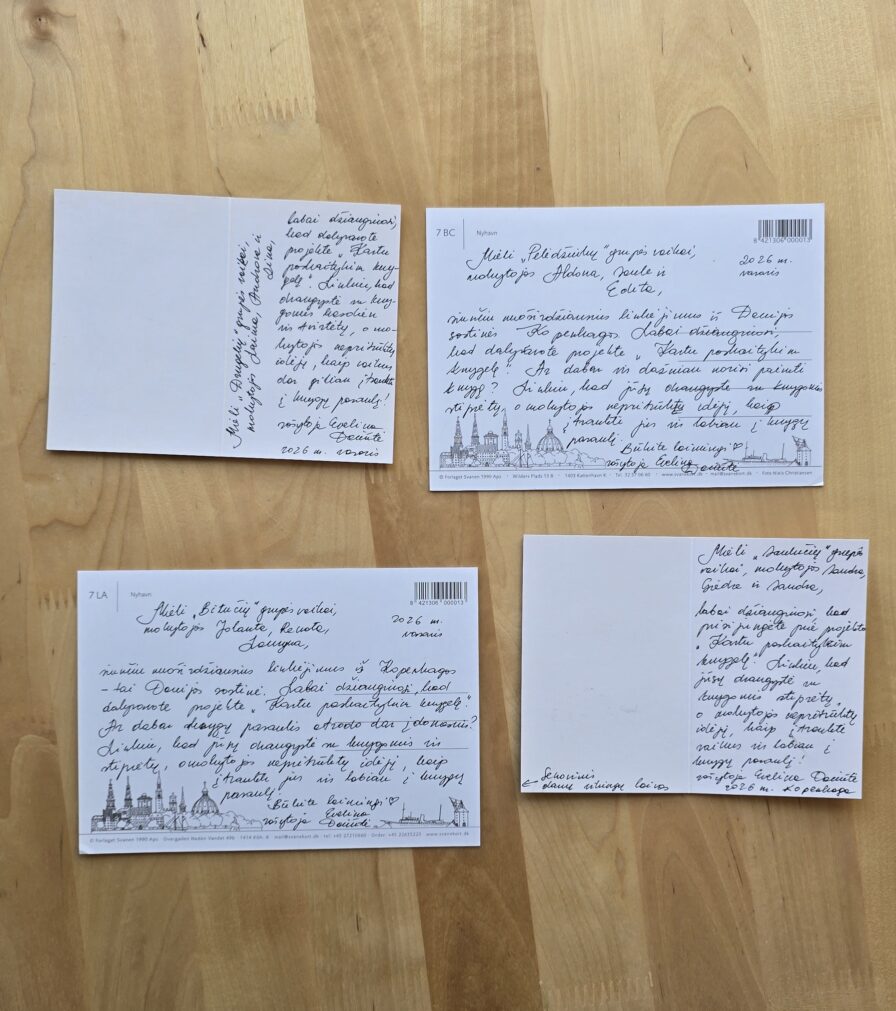 Mieli „Drugelių“ grupės vaikai,
mokytojos Laima, Androne ir
Lina,
labai džiaugiuosi,
kad dalyvavote
projekte „Kartu
paskaitykim kny-
gelę“. Linkiu, kad
draugystė su kny-
gomis kasdien
vis tvirtėtų, o mo-
kytojos nepritrūktų
idėjų, kaip vaikus
dar giliau įtraukti
į knygų pasaulį!
rašytoja Evelina
Daciūtė
2026 m. vasaris
7 BC
Nyhavn
8 421306 000013
Mieli „Pelėdžiukų“ grupės vaikai,
mokytojos Aldona, Saulė ir
Edita,
2026 m.
vasaris
siunčiu nuoširdžiausius linkėjimus iš Danijos
sostinės Kopenhagos. Labai džiaugiuosi,
kad dalyvavote projekte „Kartu paskaitykim
knygelę“. Ar dabar vis dažniau norisi paimti
knygą? Linkiu, kad jūsų draugystė su knygomis
stiprėtų, o mokytojos nepritrūktų idėjų, kaip
įtraukti jus vis labiau į knygų
pasaulį.
Būkite laimingi ♡
rašytoja Evelina
Daciūtė
© Forlaget Svanen 1990 Aps · Wilders Plads 13 B · 1403 København K · Tlf. 32 57 06 60 · www.svanekort.dk · mail@svanekort.dk · Foto Niels Christensen
7 LA
Nyhavn
8 421306 000013
Mieli „Bitučių“ grupės vaikai,
mokytojos Jolanta, Renata,
2026 m.
vasaris
siunčiu nuoširdžiausius linkėjimus iš Kopenhagos
– tai Danijos sostinė. Labai džiaugiuosi, kad
dalyvavote projekte „Kartu paskaitykim knygelę“.
Ar dabar knygų pasaulis atrodo dar įdomesnis?
Linkiu, kad jūsų draugystė su knygomis vis
stiprėtų, o mokytojos nepritrūktų idėjų, kaip
įtraukti jus vis labiau į knygų
pasaulį!
Būkite laimingi ♡
rašytoja Evelina
Daciūtė
© Forlaget Svanen 1990 Aps · Overgaden Neden Vandet 49b · 1414 Kbh. K · mail@svanekort.dk · tel: +45 27210660 · Order: +45 22635223 · www.svanekort.dk
Mieli „Saulučių“ grupės
vaikai, mokytojos Sandra,
Giedrė ir Sandra,
labai džiaugiuosi, kad
prisijungėte prie projekto
„Kartu paskaitykim
knygelę“. Linkiu, kad
jūsų draugystė su
knygomis stiprėtų,
o mokytojos nepritrūktų
idėjų, kaip įtraukti
vaikus vis labiau į
knygų pasaulį!
rašytoja Evelina Daciūtė
2026 m. Kopenhaga
← Senovinis
danų vikingų laivas